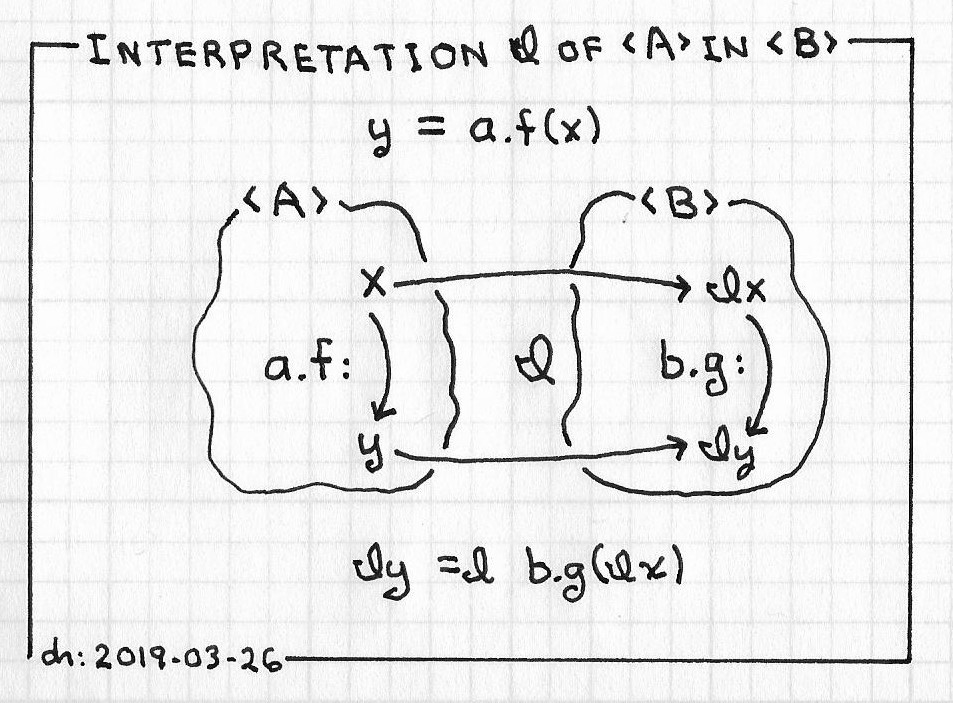 INTERPRETATION ℐ OF <A> IN <B>
y = a.f(x)
<A> <B>
x ℐx
a.f: ℐ b.g:
y ℐy
ℐy =ℐ b.g(ℐx)
dh: 2019-03-26